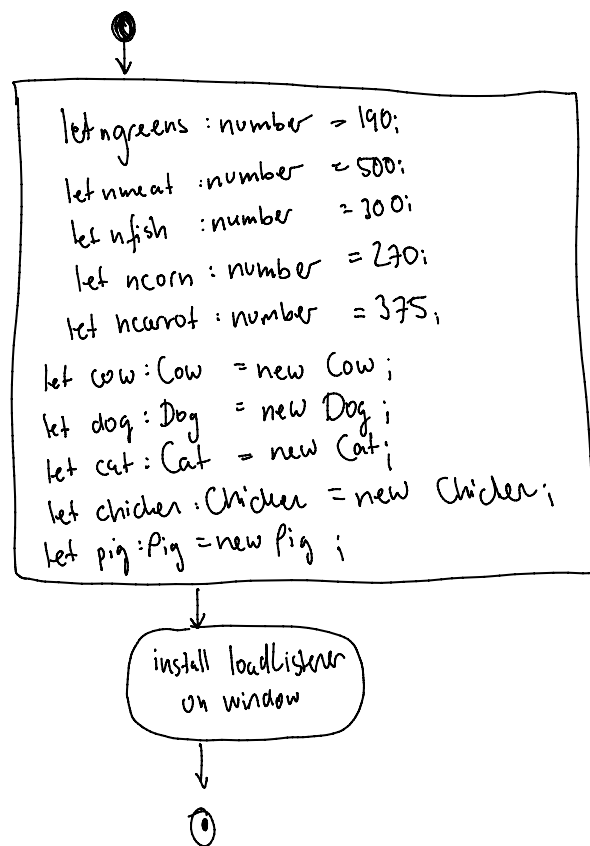 let ngreens : number = 190;
let nmeat : number = 500;
let nfish : number = 300;
let ncorn : number = 270;
let ncarrot : number = 375;
let cow : Cow = new Cow ;
let dog : Dog = new Dog ;
let cat : Cat = new Cat ;
let chicken : Chicken = new Chicken ;
let pig : Pig = new Pig ;
install loadListener
on window